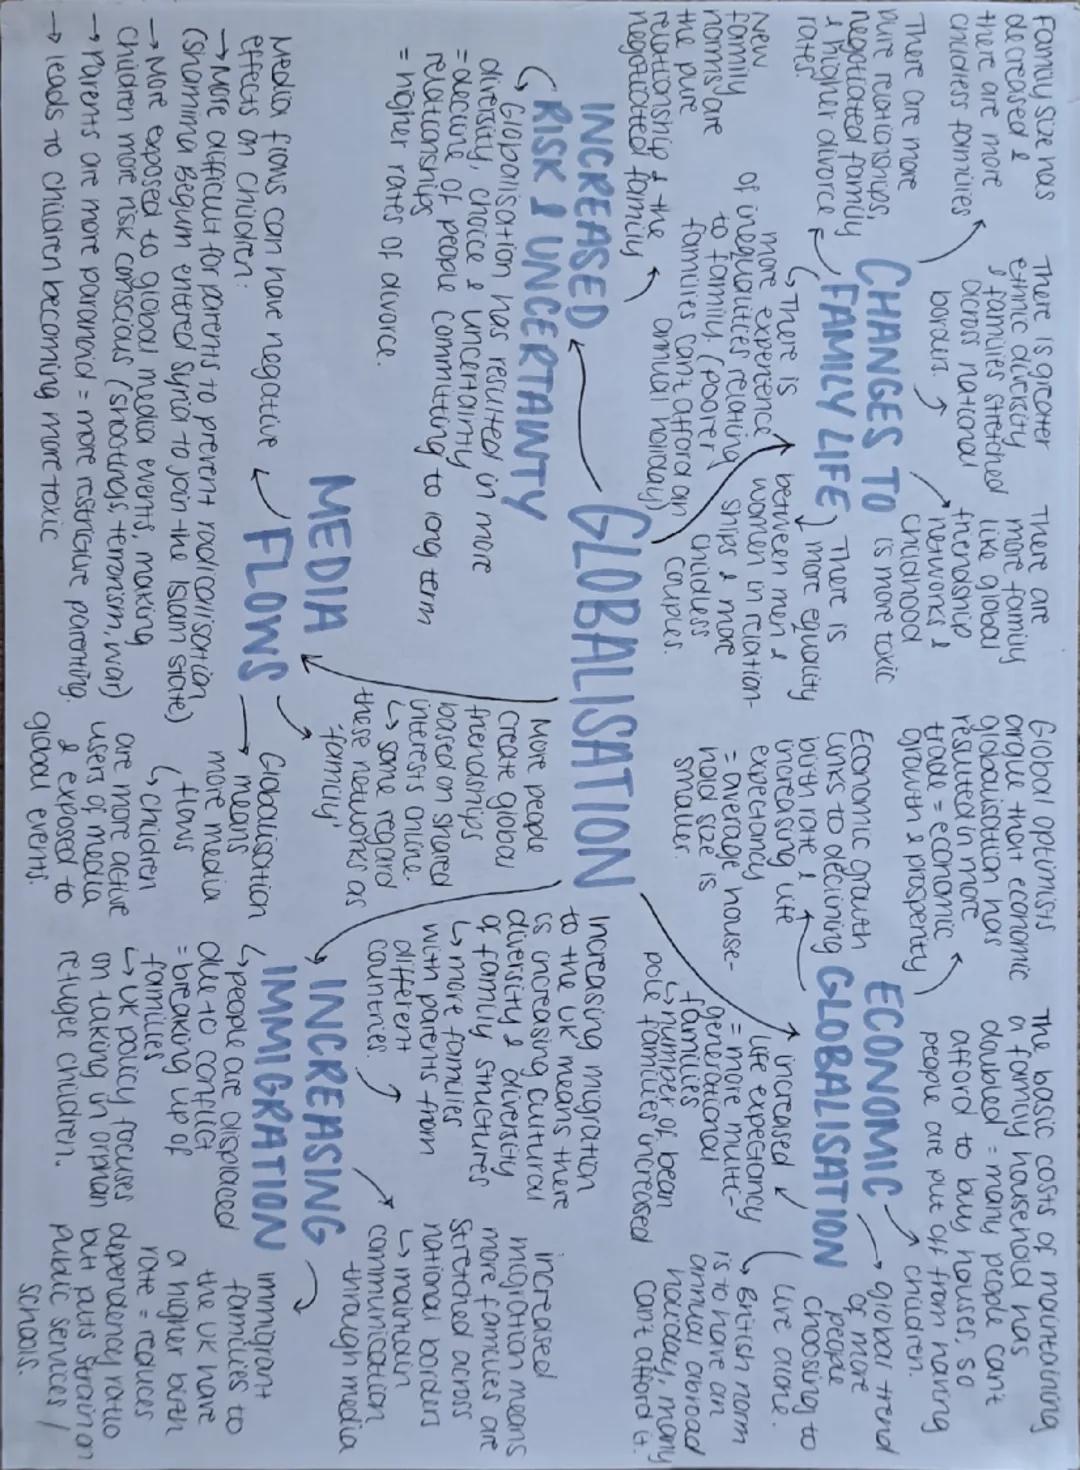 GLOBALISATION
CHANGES TO
FAMILY LIFE
Family size has
decreased &
there are more
childless families
There is greater
ethnic diversity
& families stretched
across national
borders.
There are
more family
like global
friendship
networks &
childhood
is more toxic
There are more
pure relationships,
negotiated family
& higher divorce
rates.
New
family
norms are
the pure
relationship & the
negotiated family
There is
more experience
of inequalities relating
to family. (poorer
families can't afford an
annual holiday)
There is
more equality
between men &
women in relation-
ships & more
childless
couples.
ECONOMIC
GLOBALISATION
Global optimists
argue that economic
globalisation has
resulted in more
trade = economic
growth & prosperity
The basic costs of maintaining
a family household has
doubled = many people can't
afford to buy houses, so
people are put off from having
children.
Economic growth
links to declining
birth rate &
increasing life
expectancy
= average house-
hold size is
smaller.
increased
life expectancy
= more multi-
generational
families
↳ number of bean
pole families increased
global trend
of more
people
choosing to
live alone.
British norm
is to have an
annual abroad
holiday, many
can't afford it.
INCREASED
RISK & UNCERTAINTY
↳ Globalisation has resulted in more
diversity, choice & uncertainty
= decline of people committing to long term
relationships
= higher rates of divorce.
MEDIA
FLOWS
More people
create global
friendships
based on shared
interests online.
↳ some regard
these networks as
'family'
Media flows can have negative
effects on children:
→ More difficult for parents to prevent radicalisation
(Shamima Begum entered Syria to join the Islam State)
→ More exposed to global media events, making
children more risk conscious (shootings, terrorism, war)
→ Parents are more paranoid = more restrictive parenting.
→ leads to children becoming more toxic
Globalisation
means
more media
flows
↳ children
are more active
users of media
& exposed to
global events.
INCREASING
IMMIGRATION
Increasing migration
to the UK means there
is increasing cultural
diversity & diversity
of family structures
↳ more families
with parents from
different
countries.
increased
migration means
more families are
stretched across
national borders
↳ maintain
communication
through media
↳ people are displaced
due to conflict
= breaking up of
families
↳ UK policy focuses
on taking in orphan
refugee children.
immigrant
families to
the UK have
a higher birth
rate = reduces
dependency ratio
but puts strain on
public services /
schools.